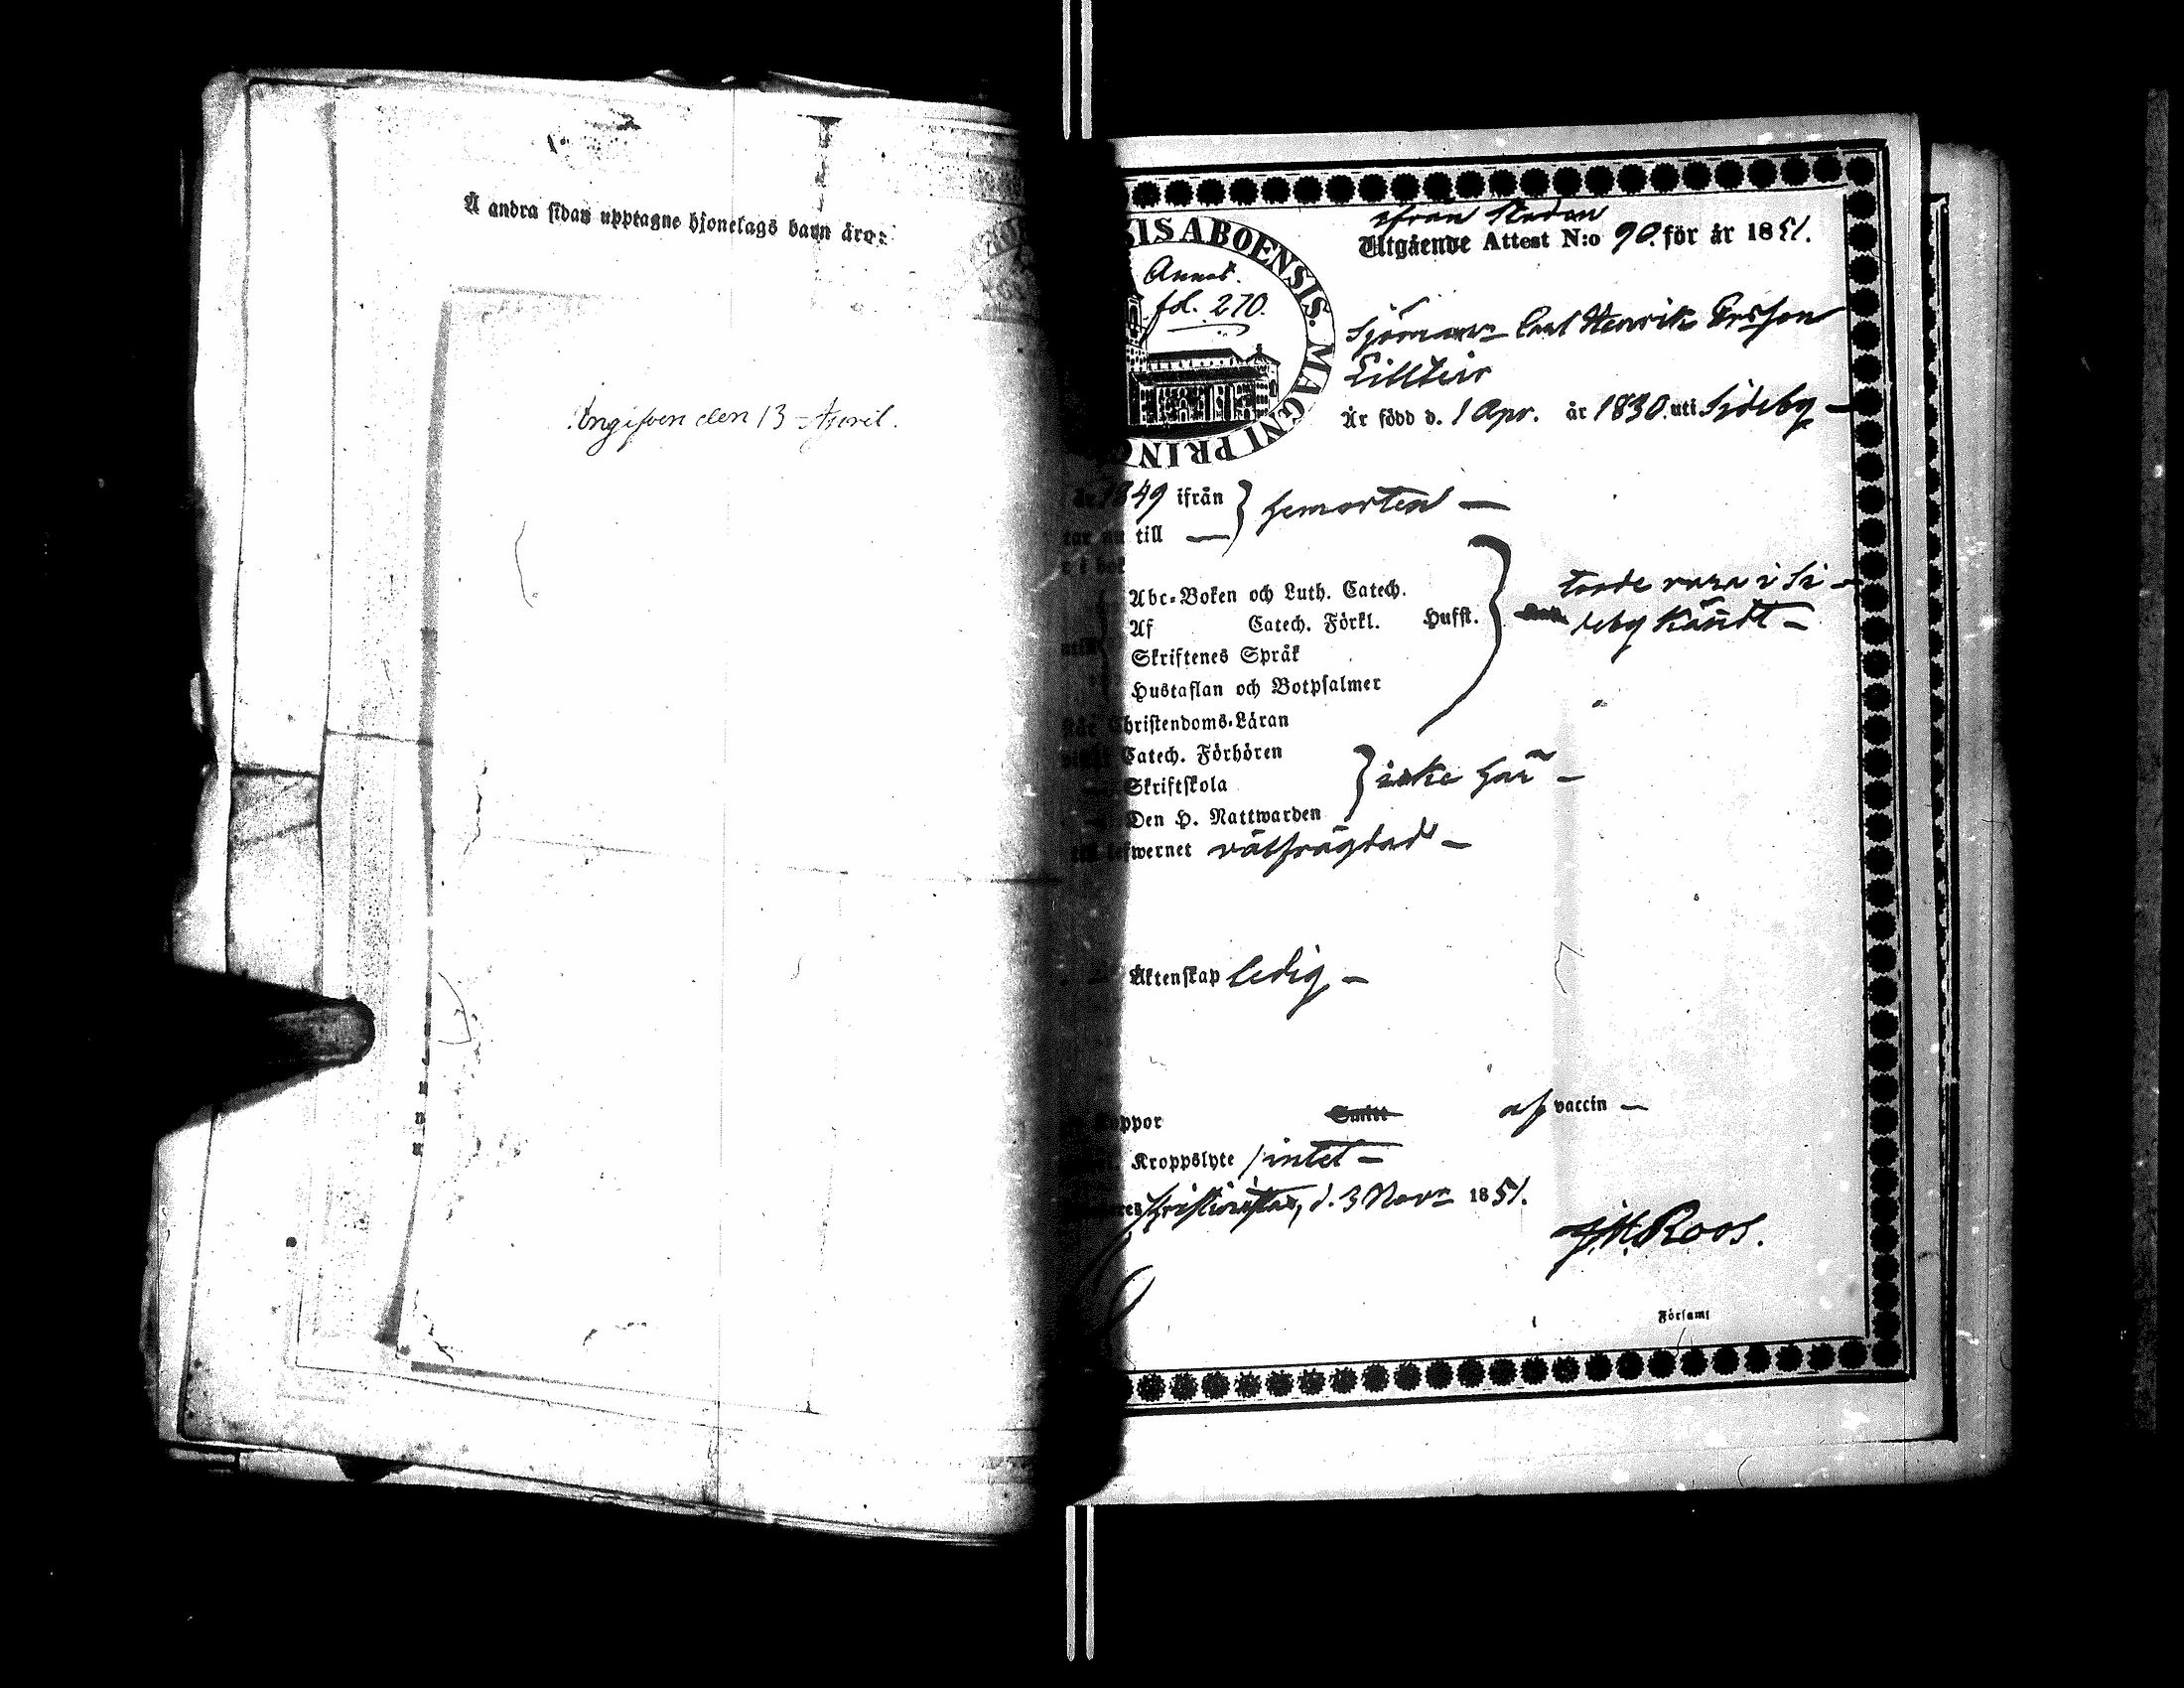 Å andra sidan upptagne hjonelags barn äro:
Ingifven den 13 April.
ifrån Staden
Utgående Attest N:o 90. för år 1851.
SIS ABOENSIS. MAGNI PRINC
Annot.
fol. 270.
Sjöman Carl Henrik Ersson
Lillteir
Är född d. 1 Apr. år 1830. uti Sideby —
år 1849 ifrån
till — } hemorten —
Abc-Boken och Luth. Catech.
Af Catech. Förkl. Hufst.
Skriftenes Språk
Hustaflan och Botpsalmer
Christendoms-Läran
torde vara i Si-
deby kändt —
Catech. Förhören
Skriftskola
Den H. Nattwarden
} icke här —
lefwernet välfrägdad —
Äktenskap ledig —
Koppor Smitt af vaccin —
Kroppslyte intet —
Christinestad, d. 3 Nov. 1851.
J.H. Roos.
Församl